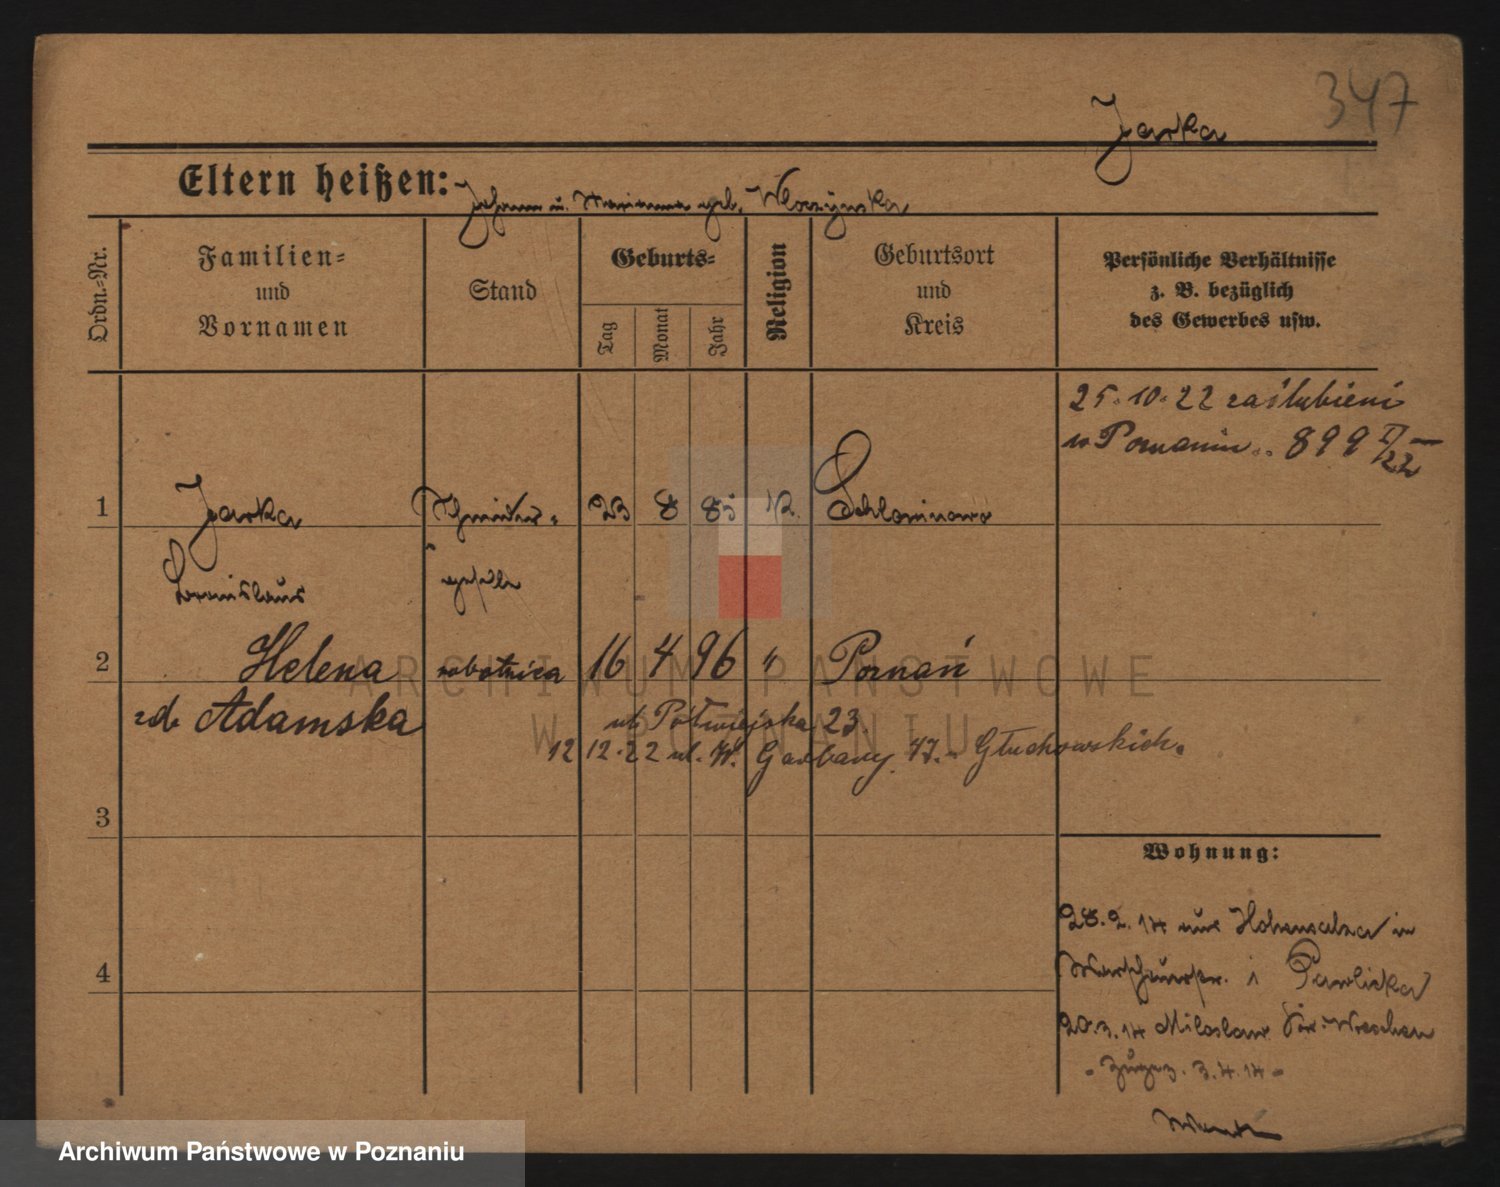 347
Jarka
Eltern heißen: Johann u. Marianna geb.
Ordn.-Nr.
Familien-
und
Vornamen
Stand
Geburts-
Tag
Monat
Jahr
Religion
Geburtsort
und
Kreis
Persönliche Verhältnisse
z. B. bezüglich
des Gewerbes usw.
25.10.22 zaślubieni
w Poznaniu 899 /22
1 Jarka 23 8 85 K.
Bronislaus geselle
2 Helena robotnica 16 4 96 " Poznań
zd. Adamska ul. Półwiejska 23.
12 12.22 ul. W. Garbary 47. Głuchowskich.
3
Wohnung:
28.2.14 aus Hohensalza in
4 Pawlicka
20.3.14 Miloslaw Kr. Wreschen
3.4.14
ARCHIWUM PAŃSTWOWE
W POZNANIU
Archiwum Państwowe w Poznaniu